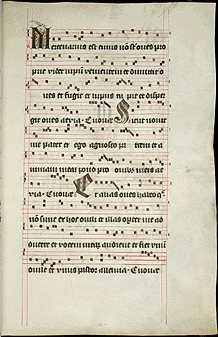 Mercenarius est cuius nõ sũt oues pro
prie videt lupũ venientem et dimittit o
ues et fugit et lupus rapit et disper
git oues aevia Euouae Sicut nouit
me pater et ego agnosco patrem et a
nimam meam pono pro ouibus meis ae
via Euouae Et alias oues habeo q̃
nõ sunt ex hoc ouili et illas oportet me ad
ducere et vocem meã audient et fiet vnũ
ouile et vnus pastor alleluia Euouae